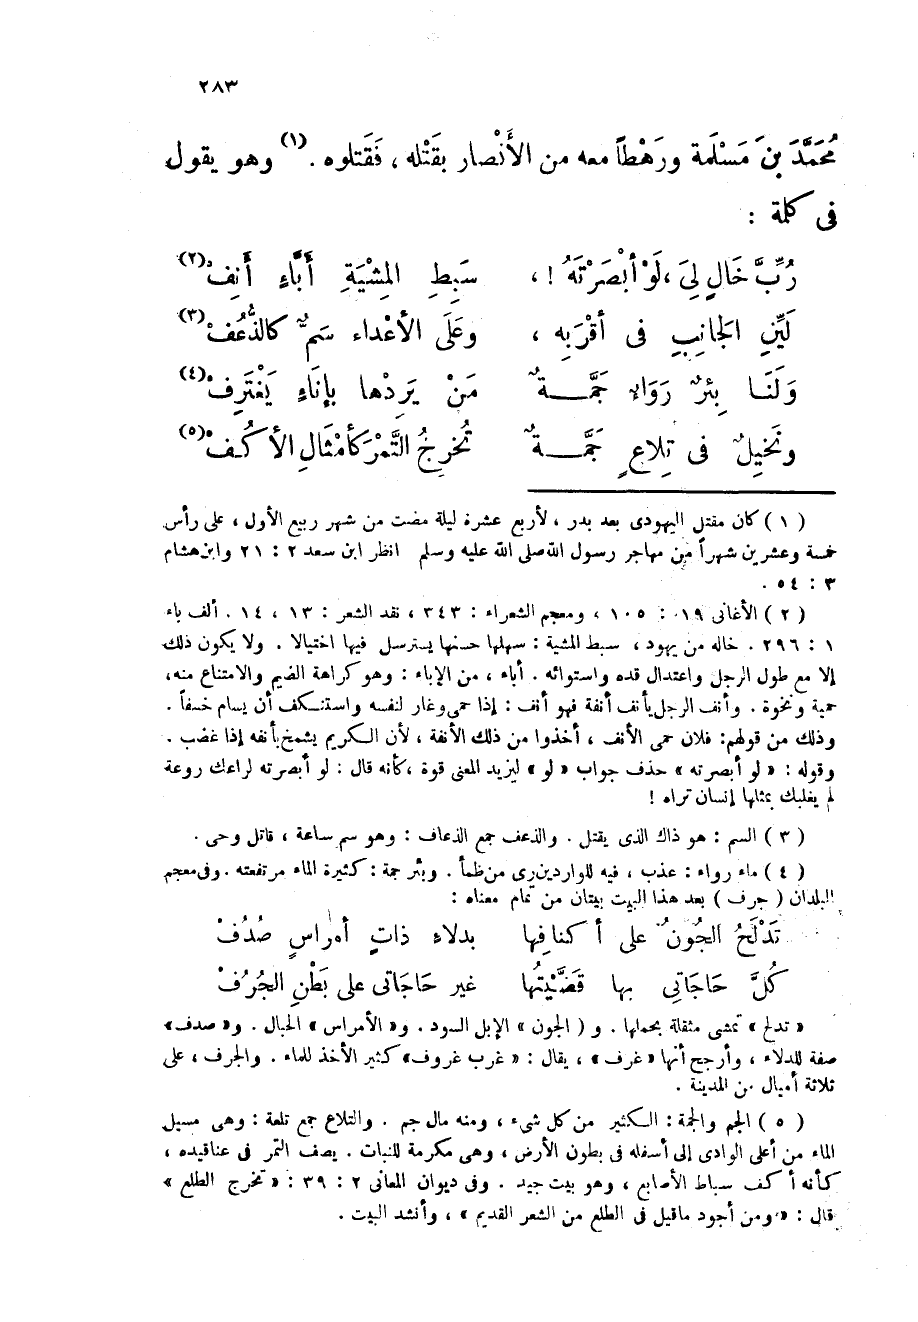 ٢٨٣
مُحَمَّدَ بنَ مَسْلَمة ورَهْطاً معه من الأَنْصار بقَتْله ، فَقَتلوه .(١) وهو يقول
فى كلمة :
رُبَّ خَالٍ لِىَ ، لَوْ أبْصَرْتَهُ ! ، سَبِطِ المِشْيَةِ أَبَّاءٍ أَنِفْ (٢)
لَيِّنِ الجَانِبِ فى أقْرَبِه ، وعَلَى الأعْداء سَمٌّ كالذُّعُفْ (٣)
وَلَنَـا بِئرٌ رَوَاءٌ جَمَّــةٌ مَنْ يَرِدْها بإنَاءٍ يَغْتَرِفْ (٤)
ونَخِيلٌ فى تِلاعٍ جَمَّــةٌ تُخرِجُ التَّمْرَ كأمْثَالِ الأكُفْ (٥)
( ١ ) كان مقتل اليهودى بعد بدر ، لأربع عشرة ليلة مضت من شهر ربيع الأول ، على رأس
خمسة وعشرين شهراً من مهاجر رسول الله صلى الله عليه وسلم انظر ابن سعد ٢ : ٢١ وابن هشام
٣ : ٥٤ .
( ٢ ) الأغانى ١٩ : ١٠٥ ، ومعجم الشعراء : ٣٤٣ ، نقد الشعر : ١٣ ، ١٤ . ألف باء
١ : ٢٩٦ . خاله من يهود ، سبط المشية : سهلها حسنها يسترسل فيها اختيالا . ولا يكون ذلك
إلا مع طول الرجل واعتدال قده واستوائه . أباء ، من الإباء : وهو كراهة الضيم والامتناع منه،
حمية ونخوة . وأنف الرجل يأنف أنفة فهو أنف : إذا حمى وغار لنفسه واستنكف أن يسام خسفاً .
وذلك من قولهم: فلان حمى الأنف ، أخذوا من ذلك الأنفة ، لأن الكريم يشمخ بأنفه إذا غضب .
وقوله : « لو أبصرته » حذف جواب « لو » ليزيد المعنى قوة ، كأنه قال : لو أبصرته لراعك روعة
لم يغلبك بمثلها إنسان تراه !
( ٣ ) السم : هو ذاك الذى يقتل . والذعف جمع الذعاف : وهو سم ساعة ، قاتل وحى .
( ٤ ) ماء رواء : عذب ، فيه للواردين رى من ظمأ . وبئر جمة : كثيرة الماء مرتفعته . وفى معجم
البلدان ( جرف ) بعد هذا البيت بيتان من تمام معناه :
تَدْلَحُ الجُونُ على أكنافِها بدلاء ذاتِ أمراسٍ صُدُفْ
كُلَّ حَاجَاتِى بها قَضَّيْتُها غير حَاجَاتى على بَطْنِ الجُرُفْ
« تدلح » تمشى مثقلة بحملها . و ( الجون » الإبل السود . و« الأمراس » الحبال . و« صدف»
صفة للدلاء ، وأرجح أنها « غرف » ، يقال : « غرب غروف» كثير الأخذ للماء . والجرف ، على
ثلاثة أميال من المدينة .
( ٥ ) الجم والجمة : الكثير من كل شىء ، ومنه مال جم . والتلاع جمع تلعة : وهى مسيل
الماء من أعلى الوادى إلى أسفله فى بطون الأرض ، وهى مكرمة للنبات . يصف التمر فى عناقيده ،
كأنه أكف سباط الأصابع ، وهو بيت جيد . وفى ديوان المعانى ٢ : ٣٩ : « تخرج الطلع »
قال : « ومن أجود ماقيل فى الطلع من الشعر القديم » ، وأنشد البيت .